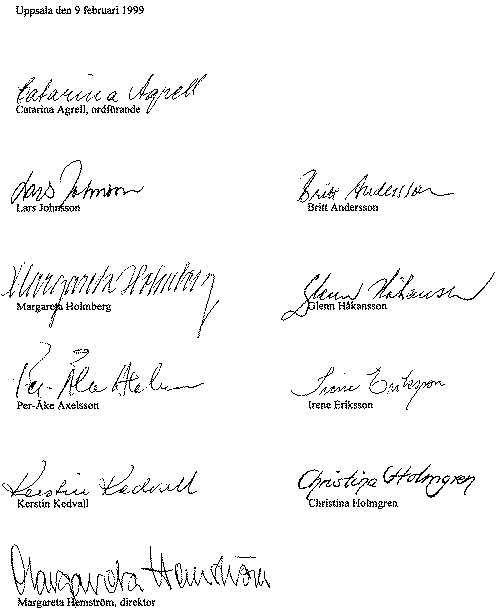 Uppsala den 9 februari 1999
Catarina Agrell
Catarina Agrell, ordförande
Lars Johnsson
Lars Johnsson
Britt Andersson
Britt Andersson
Margareta Holmberg
Margareta Holmberg
Glenn Håkansson
Glenn Håkansson
Per-Åke Axelsson
Per-Åke Axelsson
Irene Eriksson
Irene Eriksson
Kerstin Kedvall
Kerstin Kedvall
Christina Holmgren
Christina Holmgren
Margareta Hemström
Margareta Hemström, direktor